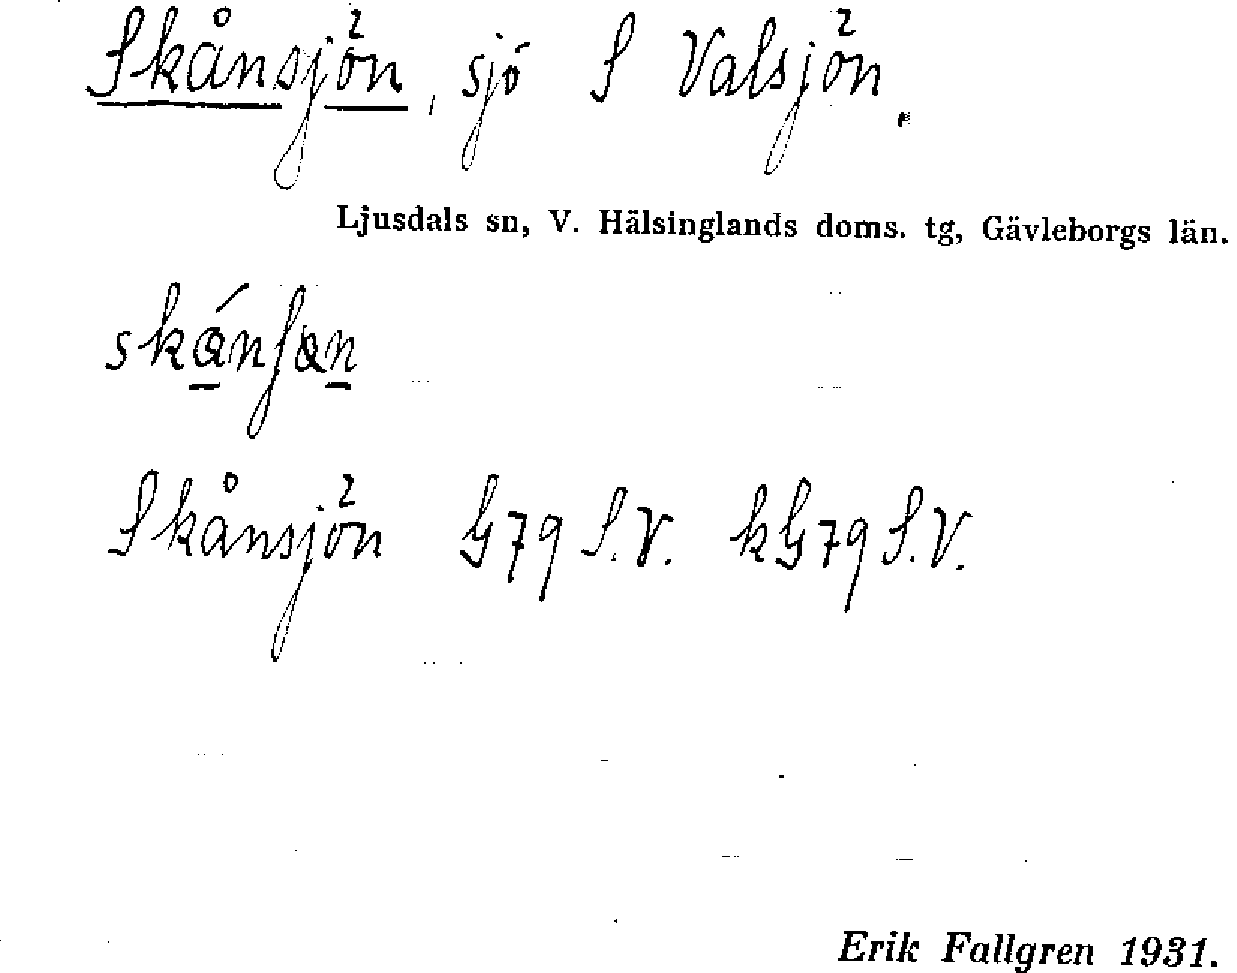 Skånsjön, sjö S Valsjön.
Ljusdals sn, V. Hälsinglands doms. tg, Gävleborgs län.
Skånsjön G79 S.V. kG79 S.V.
Erik Fallgren 1931.